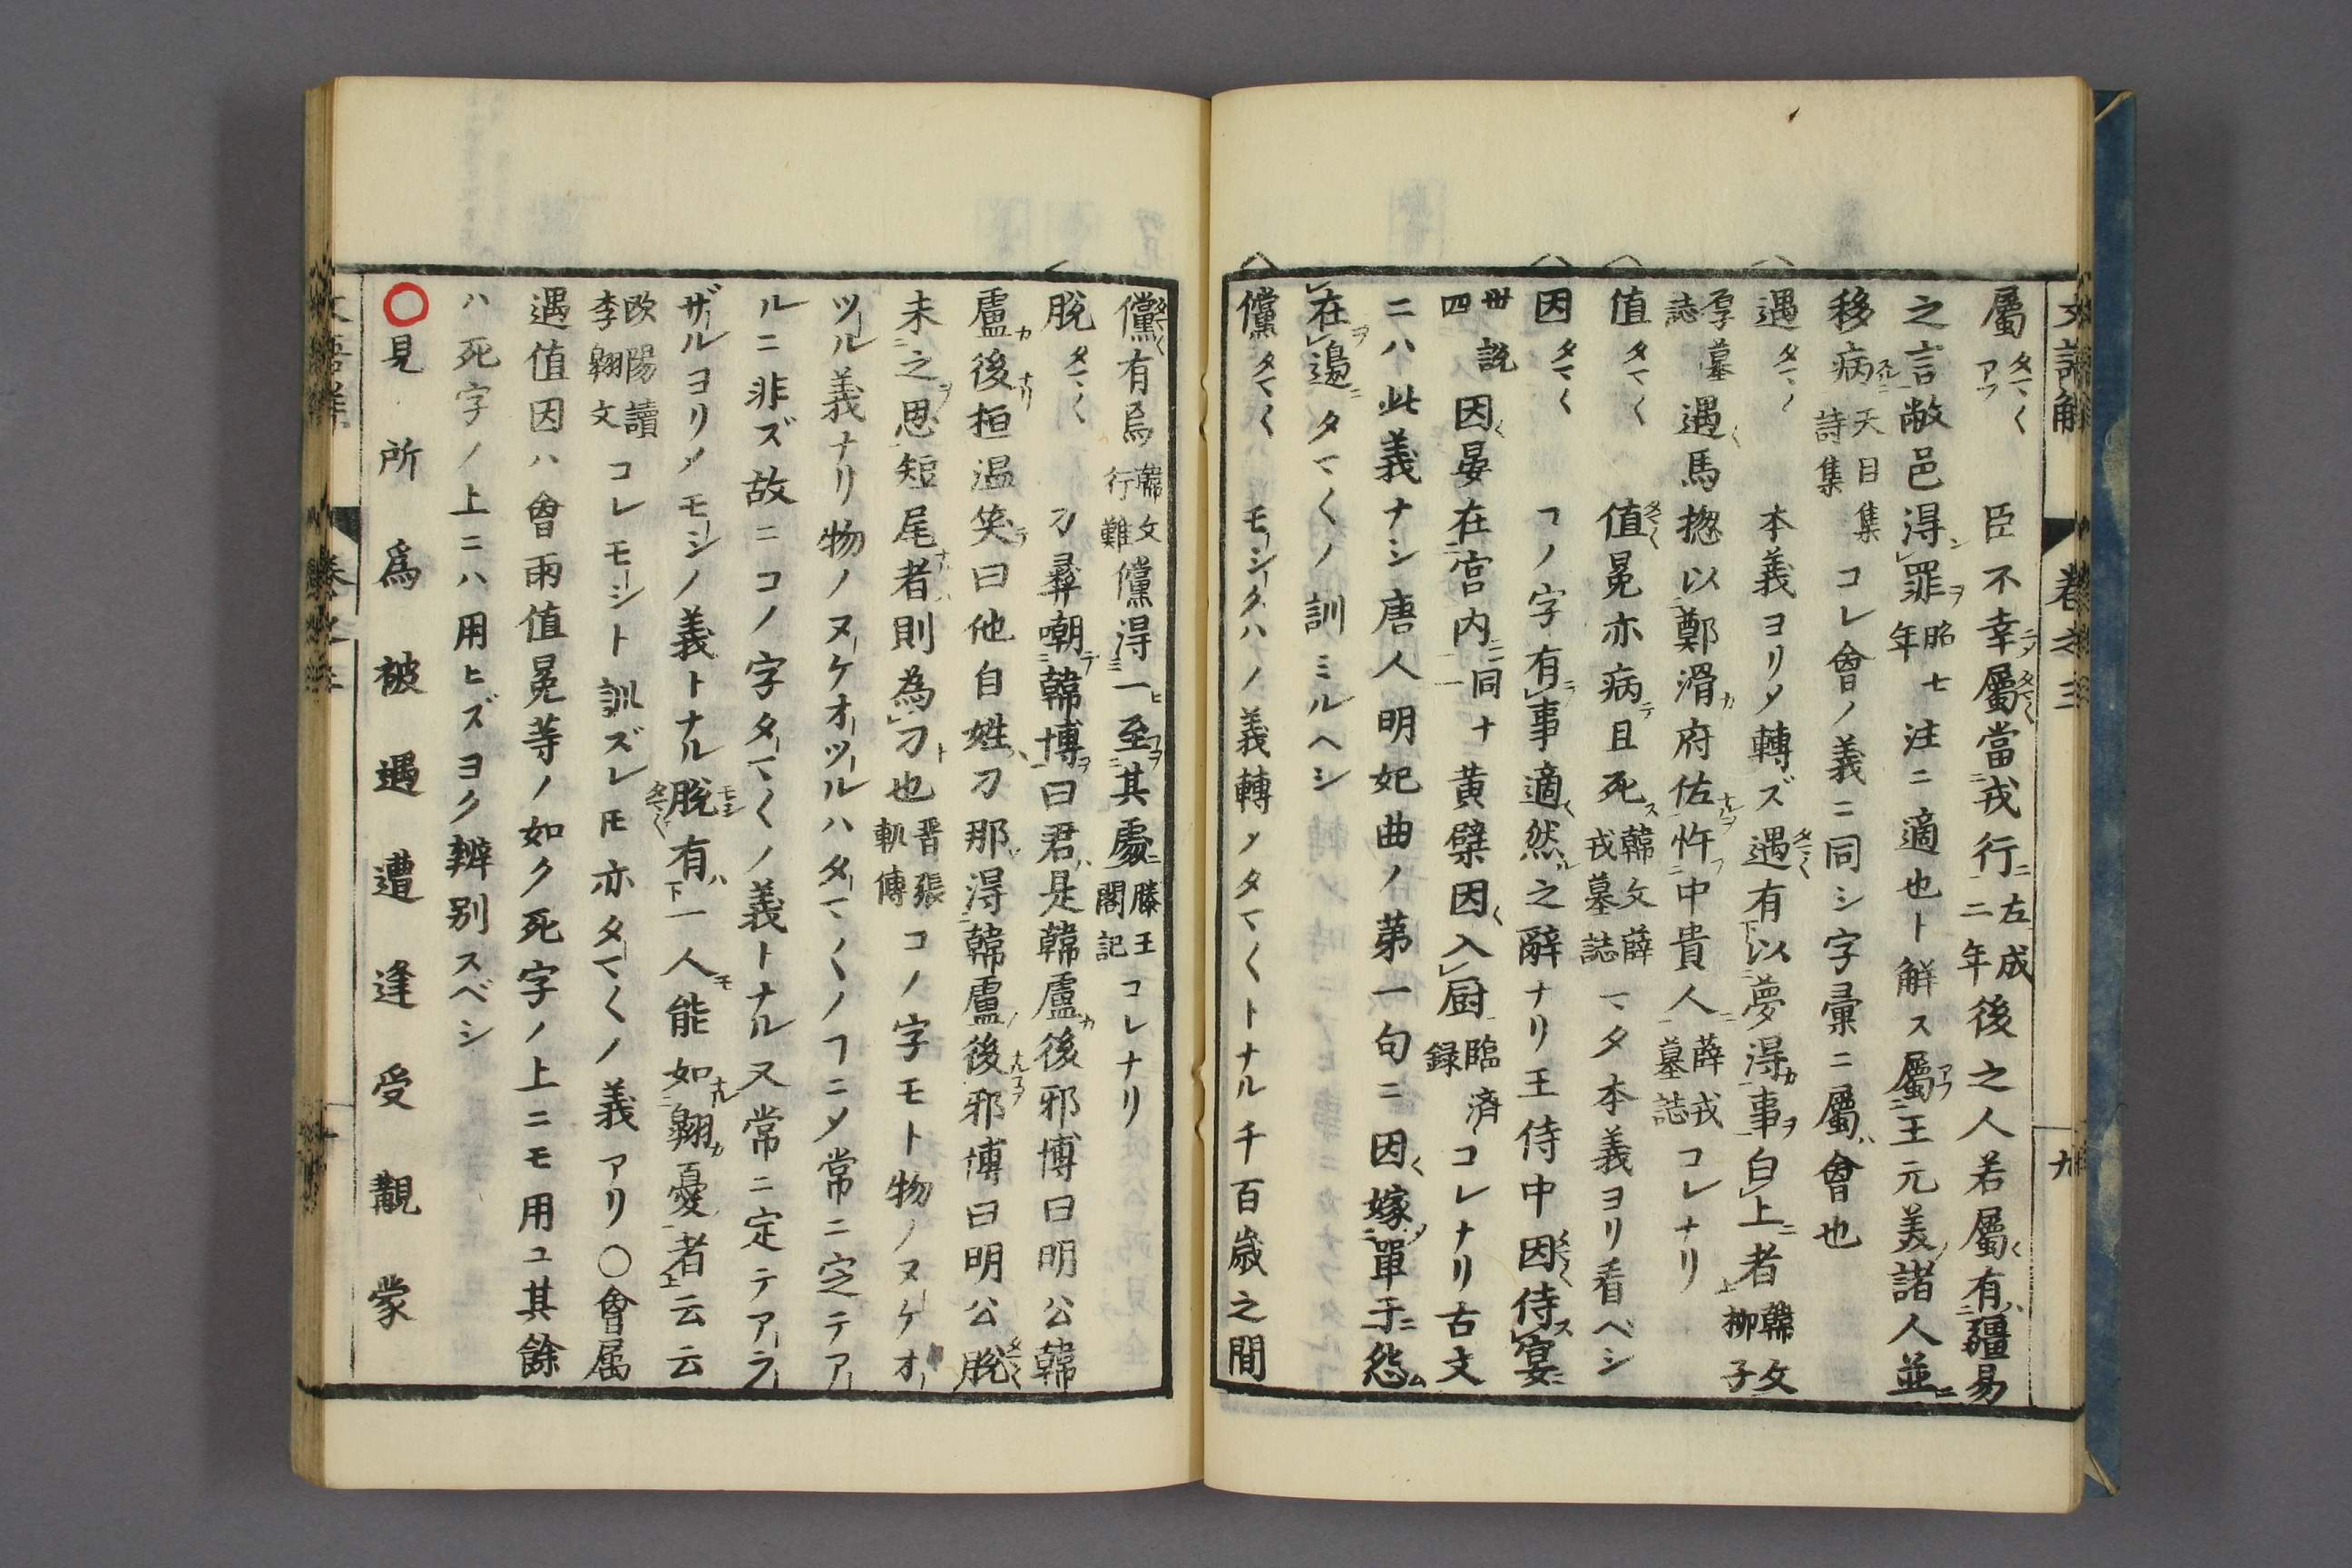 文語解 卷之三 九
屬 タマ〱 アフ 臣不幸屬當戎行 左成二年 後之人若屬有疆易
之言敝邑得罪 昭七年 注ニ適也ト解ス屬王元美諸人並
移病 天目集 詩集 コレ會ノ義ニ同シ字彙ニ屬ハ會也
遇 タマ〱 本義ヨリメ轉ズ遇有以夢得事白上者 韓文柳子
厚墓誌 遇馬摠以鄭滑府佐忤中貴人 薛戎墓誌 コレナリ
値 タマ〱 値冕亦病且死 韓文薛戎墓誌 マタ本義ヨリ看ベシ
因 タマ〱 コノ字有事適然之辭ナリ王侍中因侍宴
世説 四 因晏在宮内 同十一 黄檗因入厨 臨済録 コレナリ古文
ニハ此義ナシ唐人明妃曲ノ第一句ニ因嫁單于怨
在邊タマ〱ノ訓ミルヘシ
儻 タマ〱 モシクハノ義轉メタマ〱トナル千百歳之間
儻有焉 韓文行難 儻得一至其處 滕王閣記 コレナリ
脱 タマ〱 刀彝嘲韓博曰君是韓盧後邪博曰明公韓
盧後桓温笑曰他自姓刀那得韓盧後邪博曰明公脱
未之思短尾者則為刀也 晋張軌傳 コノ字モト物ノヌケオ
ツル義ナリ物ノヌケオツルハタマ〱ノヿニメ常ニ定テア
ルニ非ズ故ニコノ字タマ〱ノ義トナル又常ニ定テアラ
ザルヨリメモシノ義トナル脱有一人能如翱憂者云云
欧陽讀李翱文 コレモシト訓ズレ𪜈亦タマ〱ノ義アリ〇會属
遇値因ハ會雨値冕等ノ如ク死字ノ上ニモ用ユ其餘
ハ死字ノ上ニハ用ヒズヨク辨別スベシ
〇見所爲被遇遭逢受觀蒙